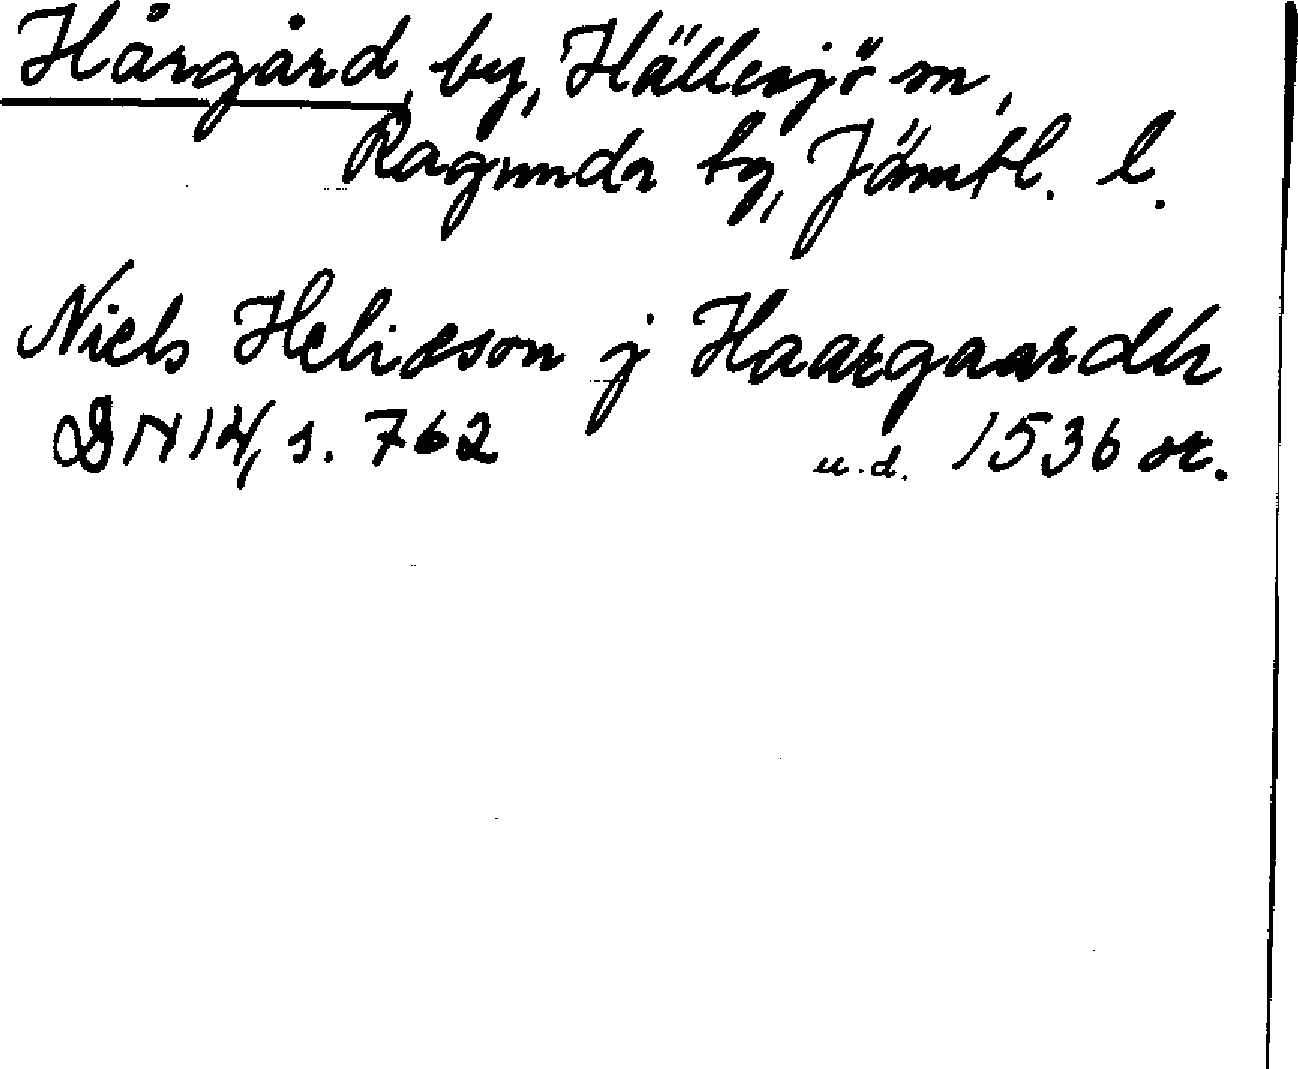 Hårgård, by, Hällesjö sn,
Ragunda tg, Jämtl. l.
Niels Heliæson j Haargaardh
DN 14, s. 762 u.d. 1536 or.